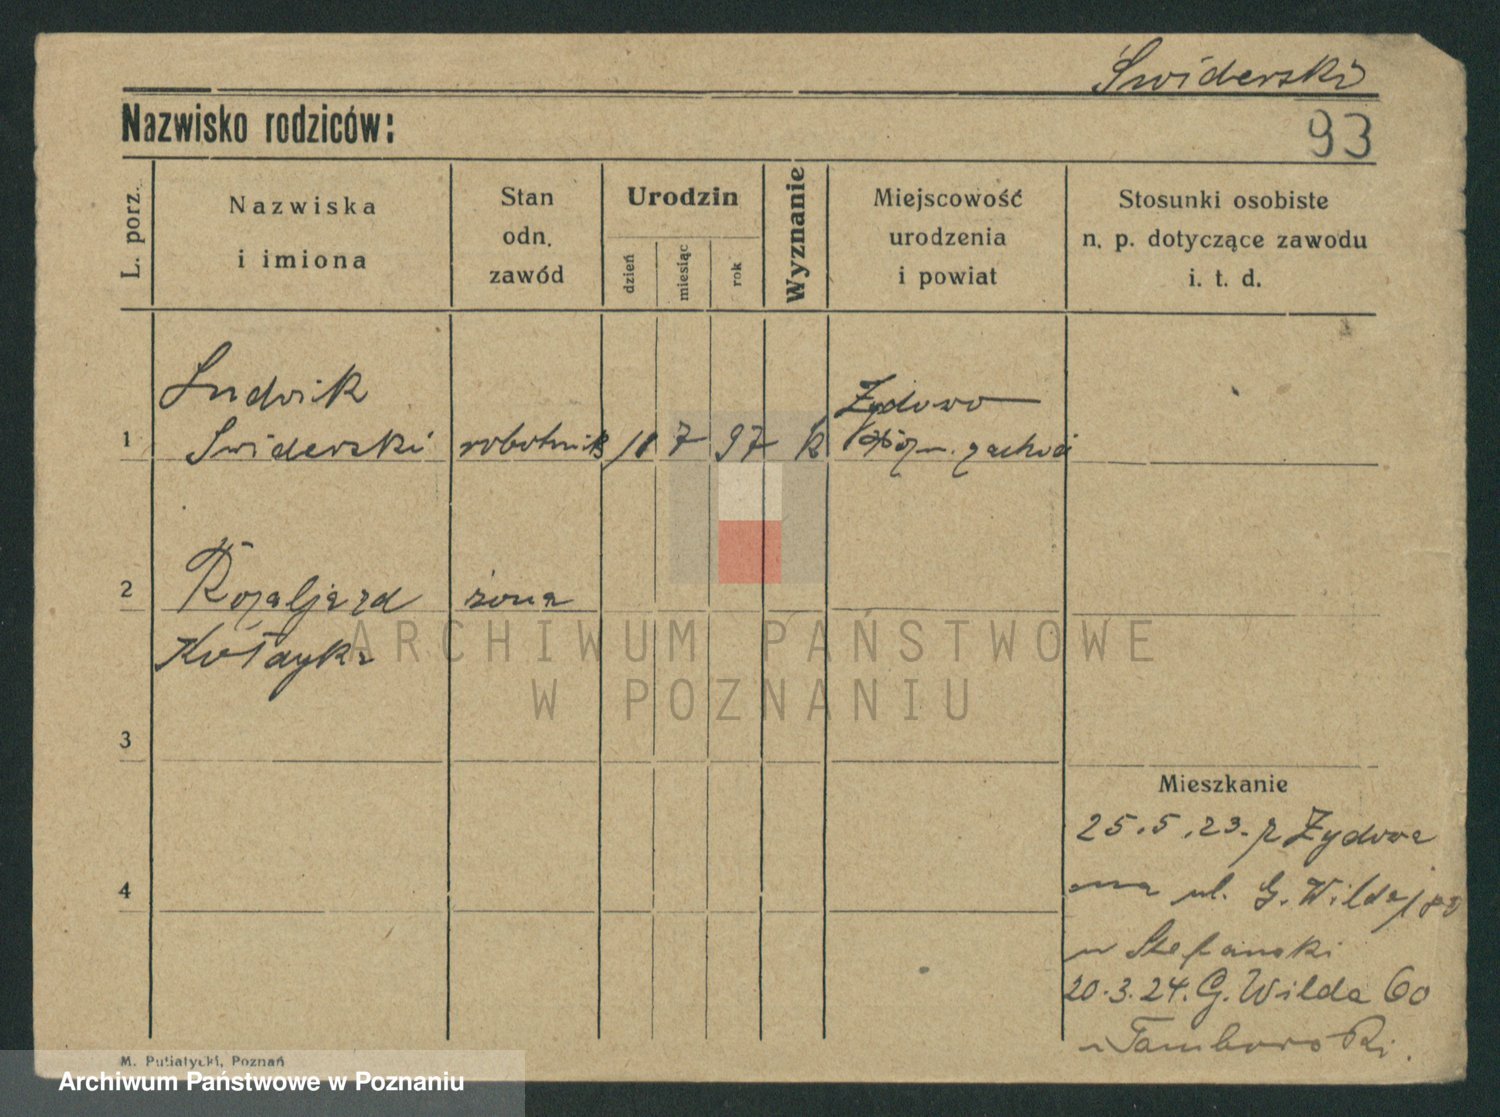 Świderski
Nazwisko rodziców:
93
L. porz.
Nazwiska
i imiona
Stan
odn.
zawód
Urodzin
dzień
miesiąc
rok
Wyznanie
Miejscowość
urodzenia
i powiat
Stosunki osobiste
n. p. dotyczące zawodu
i. t. d.
Ludwik
1 Swiderski robotnik 7 97 k
Żydowo
2
żona
3
4
Mieszkanie
25.5.23. z Żydowa
na ul. G. Wilda
u Stefanski
20.3.24. G. Wilda 60
u Tamborski.
M. Putiatycki, Poznań
ARCHIWUM PAŃSTWOWE
W POZNANIU
Archiwum Państwowe w Poznaniu